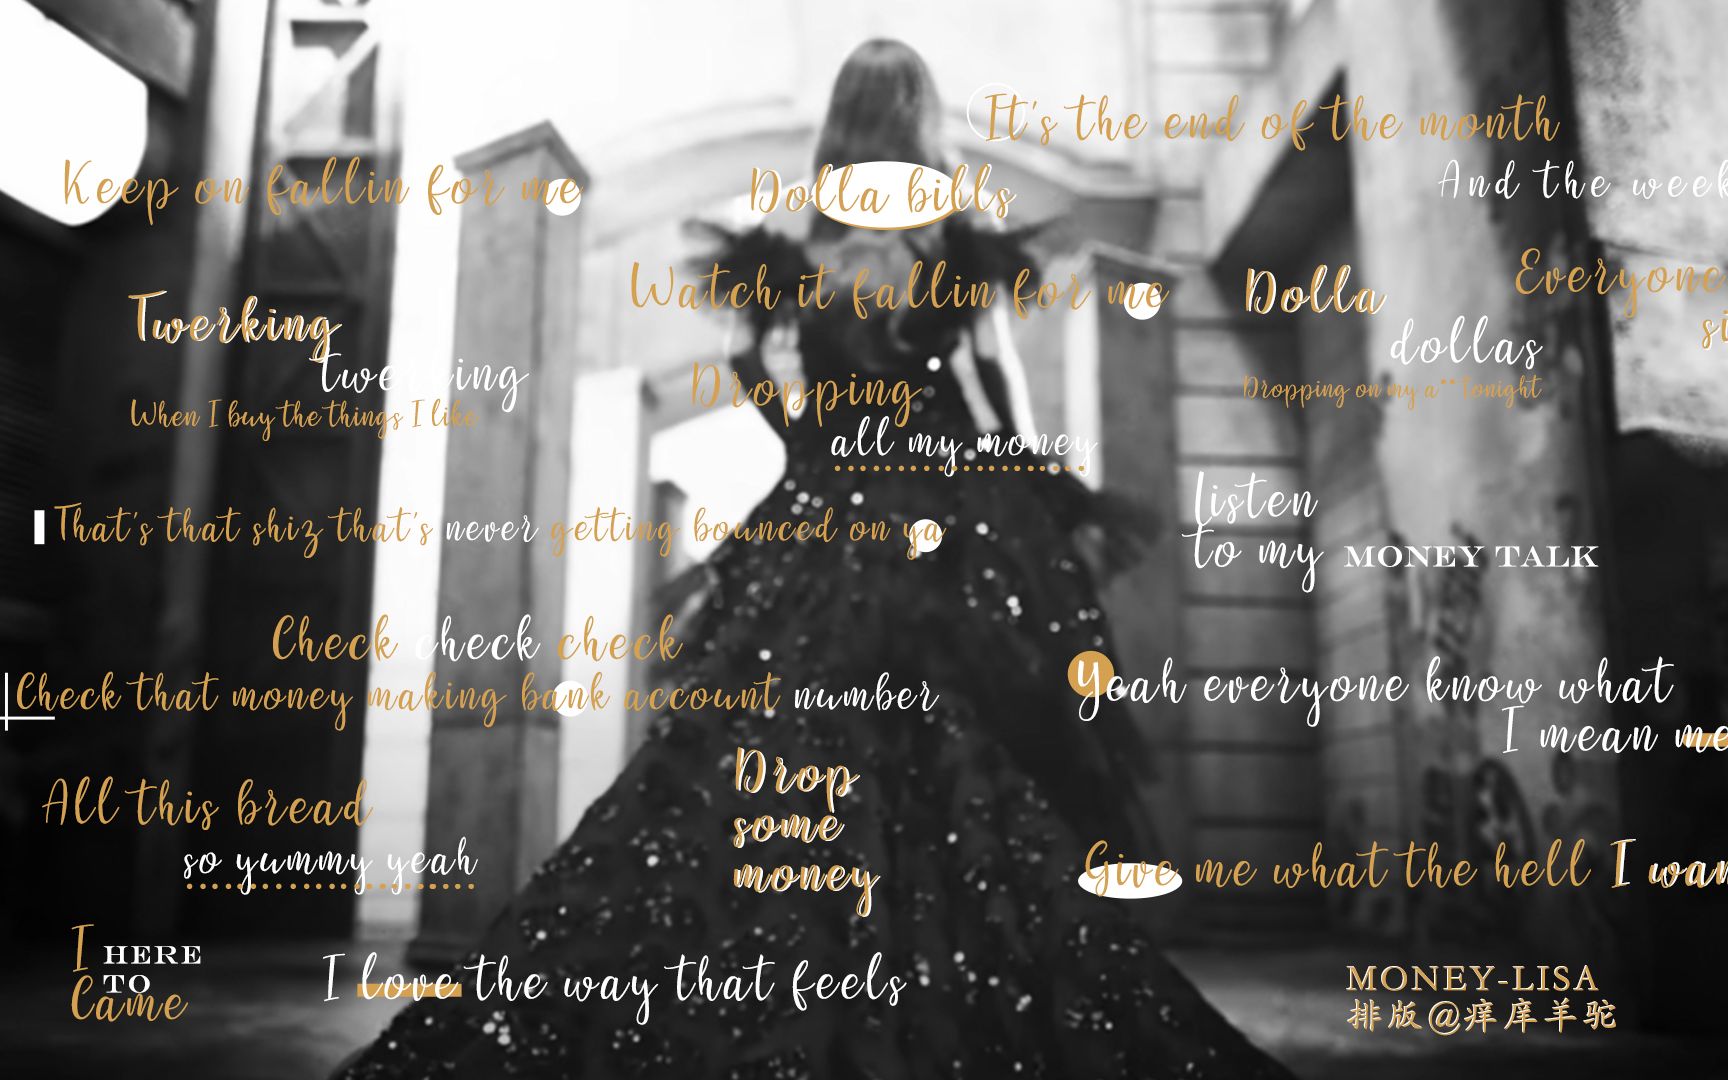 It's the end of the month
And the week
Keep on fallin for me
Dolla bills
Watch it fallin for me
Dolla
dollas
Dropping on my a**tonight
Everyone
si
Twerking
twerking
When I buy the things I like
Dropping
all my money
That's that shiz that's never getting bounced on ya
listen
to my MONEY TALK
Check check check
Check that money making bank account number
Yeah everyone know what
I mean me
All this bread
so yummy yeah
Drop
some
money
Give me what the hell I wan
I HERE
TO
Came
I love the way that feels
MONEY-LISA
排版@痒庠羊驼